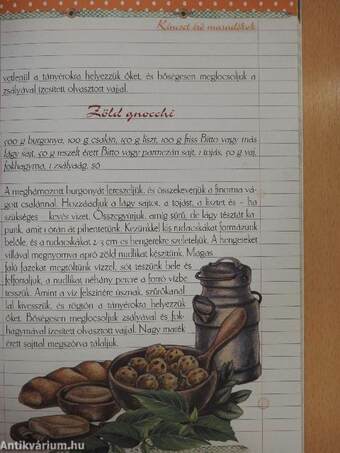 Kincset érő maradékok
vetlenül a tányérokra helyezzük őket, és bőségesen meglocsoljuk a
zsályával ízesített olvasztott vajjal.
Zöld gnocchi
500 g burgonya, 100 g csalán, 150 g liszt, 100 g friss Bitto vagy más
lágy sajt, 50 g reszelt érett Bitto vagy parmezán sajt, 1 tojás, 50 g vaj,
fokhagyma, 1 zsályaág, só
A meghámozott burgonyát lereszeljük, és összekeverjük a finomra vá-
gott csalánnal. Hozzáadjuk a lágy sajtot, a tojást, a lisztet és – ha
szükséges – kevés vizet. Összegyúrjuk, amíg sűrű, de lágy tésztát ka-
punk, amit 1 órán át pihentetünk. Kezünkkel kis rudacskákat formázunk
belőle, és a rudacskákat 2-3 cm-es hengerekre szeleteljük. A hengereket
villával megnyomva apró zöld nudlikat készítünk. Magas
falú fazekat megtöltünk vízzel, sót teszünk bele és
felforraljuk, a nudlikat néhány percre a forró vízbe
tesszük. Amint a víz felszínére úsznak, szűrőkanál-
lal kivesszük, és rögtön a tányérokra helyezzük
őket. Bőségesen meglocsoljuk zsályával és fok-
hagymával ízesített olvasztott vajjal. Nagy marék
érett sajttal megszórva tálaljuk.
Antikvárium.hu